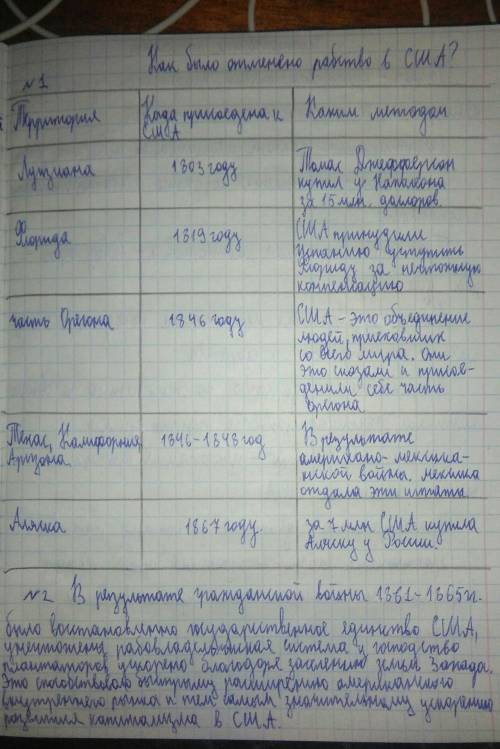 Как было отменено рабство в США?
№1
Территория
Когда присоедена к
США
Каким методом
Луизиана
1803 году
Томас Джефферсон
купил у Наполеона
за 15 млн. долларов.
Флорида
1819 году
США принудили
Испанию уступить
Флориду за
компенсацию
часть Орегона
1846 году
США - это объединение
людей, приехавших
со всего мира. Они
это сказали и присое-
денили себе часть
Орегона
Техас, Калифорния,
Аризона
1846-1848 год
В результате
американо-мексика-
нской войны. Мексика
отдала эти штаты
Аляска
1867 году.
за 7 млн США купила
Аляску у России.
№2 В результате гражданской войны 1861-1865гг.
было восстановленно государственное единство США,
уничтожены рабовладельческая система и господство
плантаторов ускорено благодоря заселению земель Запада.
Это способствовало быстрому расширению американского
внутреннего рынка и тем самым значительному ускорению
развития капитализма в США.